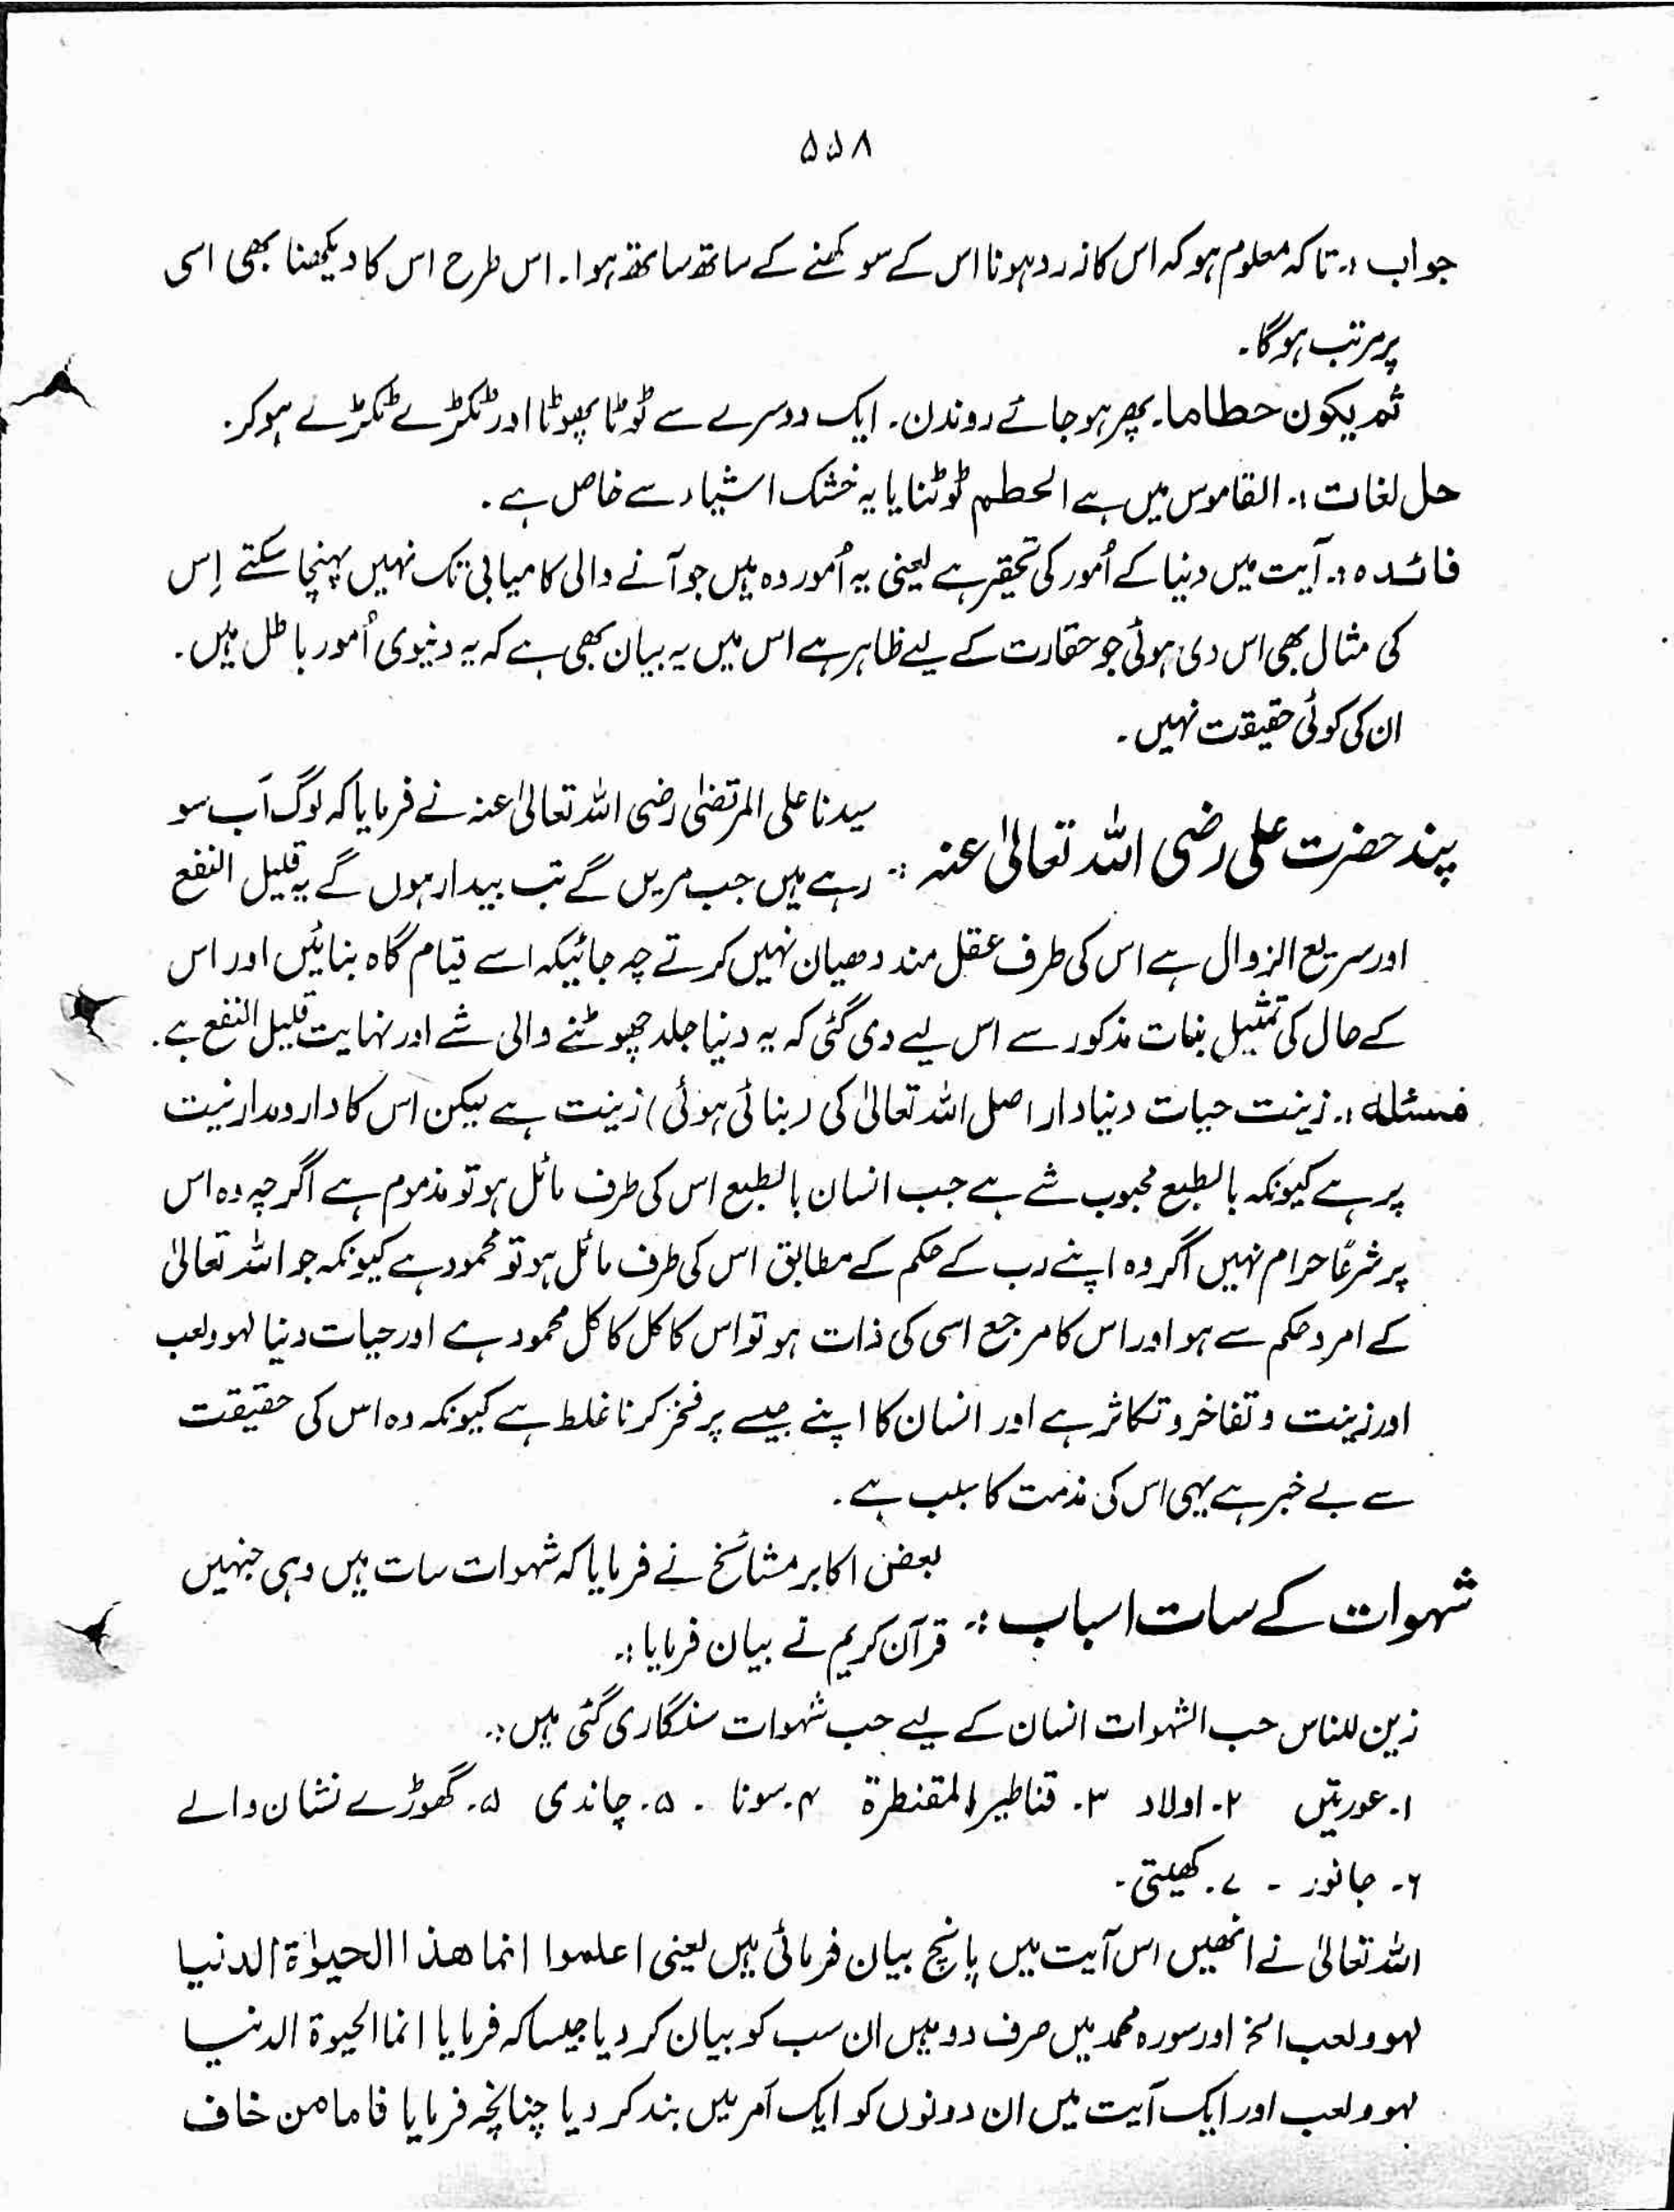 ۵۵۸
جواب :۔ تاکہ معلوم ہو کہ اس کا زرد ہونا اس کے سوکھنے کے ساتھ ساتھ ہوا۔ اس طرح اس کا دیکھنا بھی اسی
پر مرتب ہوگا۔
ثم یکون حطاما۔ پھر ہو جائے روندن۔ ایک دوسرے سے ٹوٹا پھوٹا اور ٹکڑے ٹکڑے ہو کر۔
حل لغات :۔ القاموس میں ہے الحطم ٹوٹنا یا یہ خشک اشیاء سے خاص ہے۔
فائدہ :۔ آیت میں دنیا کے اُمور کی تحقیر ہے یعنی یہ اُمور وہ ہیں جو آنے والی کامیابی تک نہیں پہنچا سکتے اِس
کی مثال بھی اس دی ہوئی جو حقارت کے لیے ظاہر ہے اس میں یہ بیان بھی ہے کہ یہ دنیوی اُمور باطل ہیں۔
ان کی کوئی حقیقت نہیں۔
پند حضرت علی رضی اللہ تعالیٰ عنہ :۔ سیدنا علی المرتضیٰ رضی اللہ تعالیٰ عنہ نے فرمایا کہ لوگ اَب سو
رہے ہیں جب مریں گے تب بیدار ہوں گے یہ قلیل النفع
اور سریع الزوال ہے اس کی طرف عقل مند دھیان نہیں کرتے چہ جائیکہ اسے قیام گاہ بنائیں اور اس
کے حال کی تمثیل بنات مذکور سے اس لیے دی گئی کہ یہ دنیا جلد چھوٹنے والی شے اور نہایت قلیل النفع ہے۔
مسئلہ :۔ زینت حیات دنیا دار اصل اللہ تعالیٰ کی (بنائی ہوئی) زینت ہے لیکن اس کا دار و مدار نیت
پر ہے کیونکہ بالطبع محبوب شے ہے جب انسان بالطبع اس کی طرف مائل ہو تو مذموم ہے اگرچہ وہ اس
پر شرعًا حرام نہیں اگر وہ اپنے رب کے حکم کے مطابق اس کی طرف مائل ہو تو محمود ہے کیونکہ جو اللہ تعالیٰ
کے امر و حکم سے ہو اور اس کا مرجع اسی کی ذات ہو تو اس کا کل کا کل محمود ہے اور حیات دنیا لہو و لعب
اور زینت و تفاخر و تکاثر ہے اور انسان کا اپنے جیسے پر فخر کرنا غلط ہے کیونکہ وہ اس کی حقیقت
سے بے خبر ہے یہی اس کی مذمت کا سبب ہے۔
شہوات کے سات اسباب :۔ بعض اکابر مشائخ نے فرمایا کہ شہوات سات ہیں وہی جنہیں
قرآن کریم نے بیان فرمایا :۔
زین للناس حب الشہوات انسان کے لیے حب شہوات سنگاری گئی ہیں :۔
۱۔ عورتیں ۲۔ اولاد ۳۔ قناطیر المقنطرۃ ۴۔ سونا ۔ ۵۔ چاندی ۵۔ گھوڑے نشان والے
۶۔ جانور ۔ ۷۔ کھیتی۔
اللہ تعالیٰ نے انھیں اس آیت میں پانچ بیان فرمائی ہیں یعنی اعلموا انما ھذا الحیوٰۃ الدنیا
لہو و لعب الخ اور سورہ محمد میں صرف دو میں ان سب کو بیان کر دیا جیسا کہ فرمایا انما الحیوۃ الدنیا
لہو و لعب اور ایک آیت میں ان دونوں کو ایک اَمر میں بند کر دیا چنانچہ فرمایا فاما من خاف